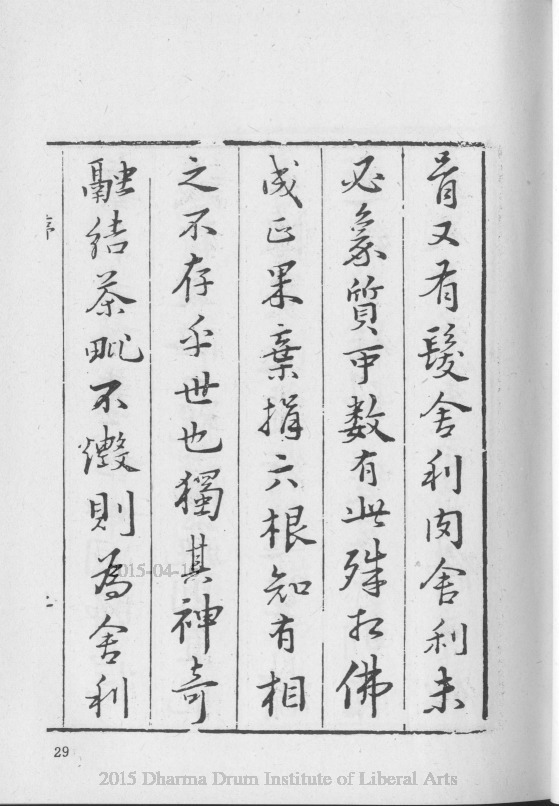 骨又有髮舍利肉舍利未
必象質可數有此殊於佛
成正果棄捐六根知有相
之不存乎世也獨其神奇
融結茶毗不燬則為舍利
序
29
2015-04-1
2015 Dharma Drum Institute of Liberal Arts